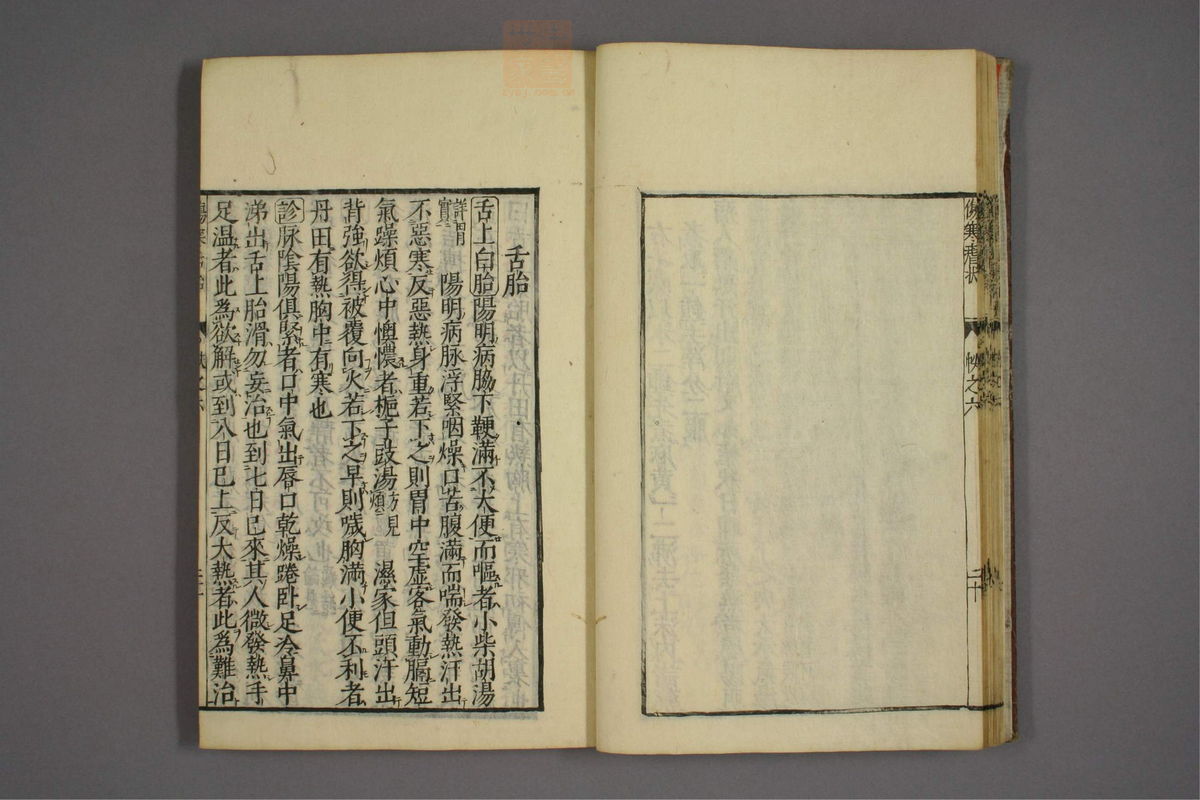 傷寒
帙之六
二十
舌胎
舌上白胎陽明病脇下鞕滿不大便而嘔者小柴胡湯
詳胃實 陽明病脉浮緊咽燥口苦腹滿而喘發熱汗出
不惡寒反惡熱身重若下之則胃中空虛客氣動膈短
氣躁煩心中懊憹者梔子豉湯方見煩 濕家但頭汗出
背強欲得被覆向火若下之早則噦胸滿小便不利者
丹田有熱胸中有寒也
診脉陰陽俱緊者口中氣出唇口乾燥踡臥足冷鼻中
涕出舌上胎滑勿妄治也到七日已來其人微發熱手
足温者此為欲解或到八日已上反大熱者此為難治